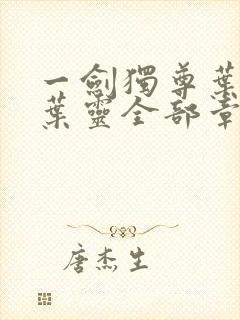 一劍獨尊葉
葉靈全部章
唐杰生